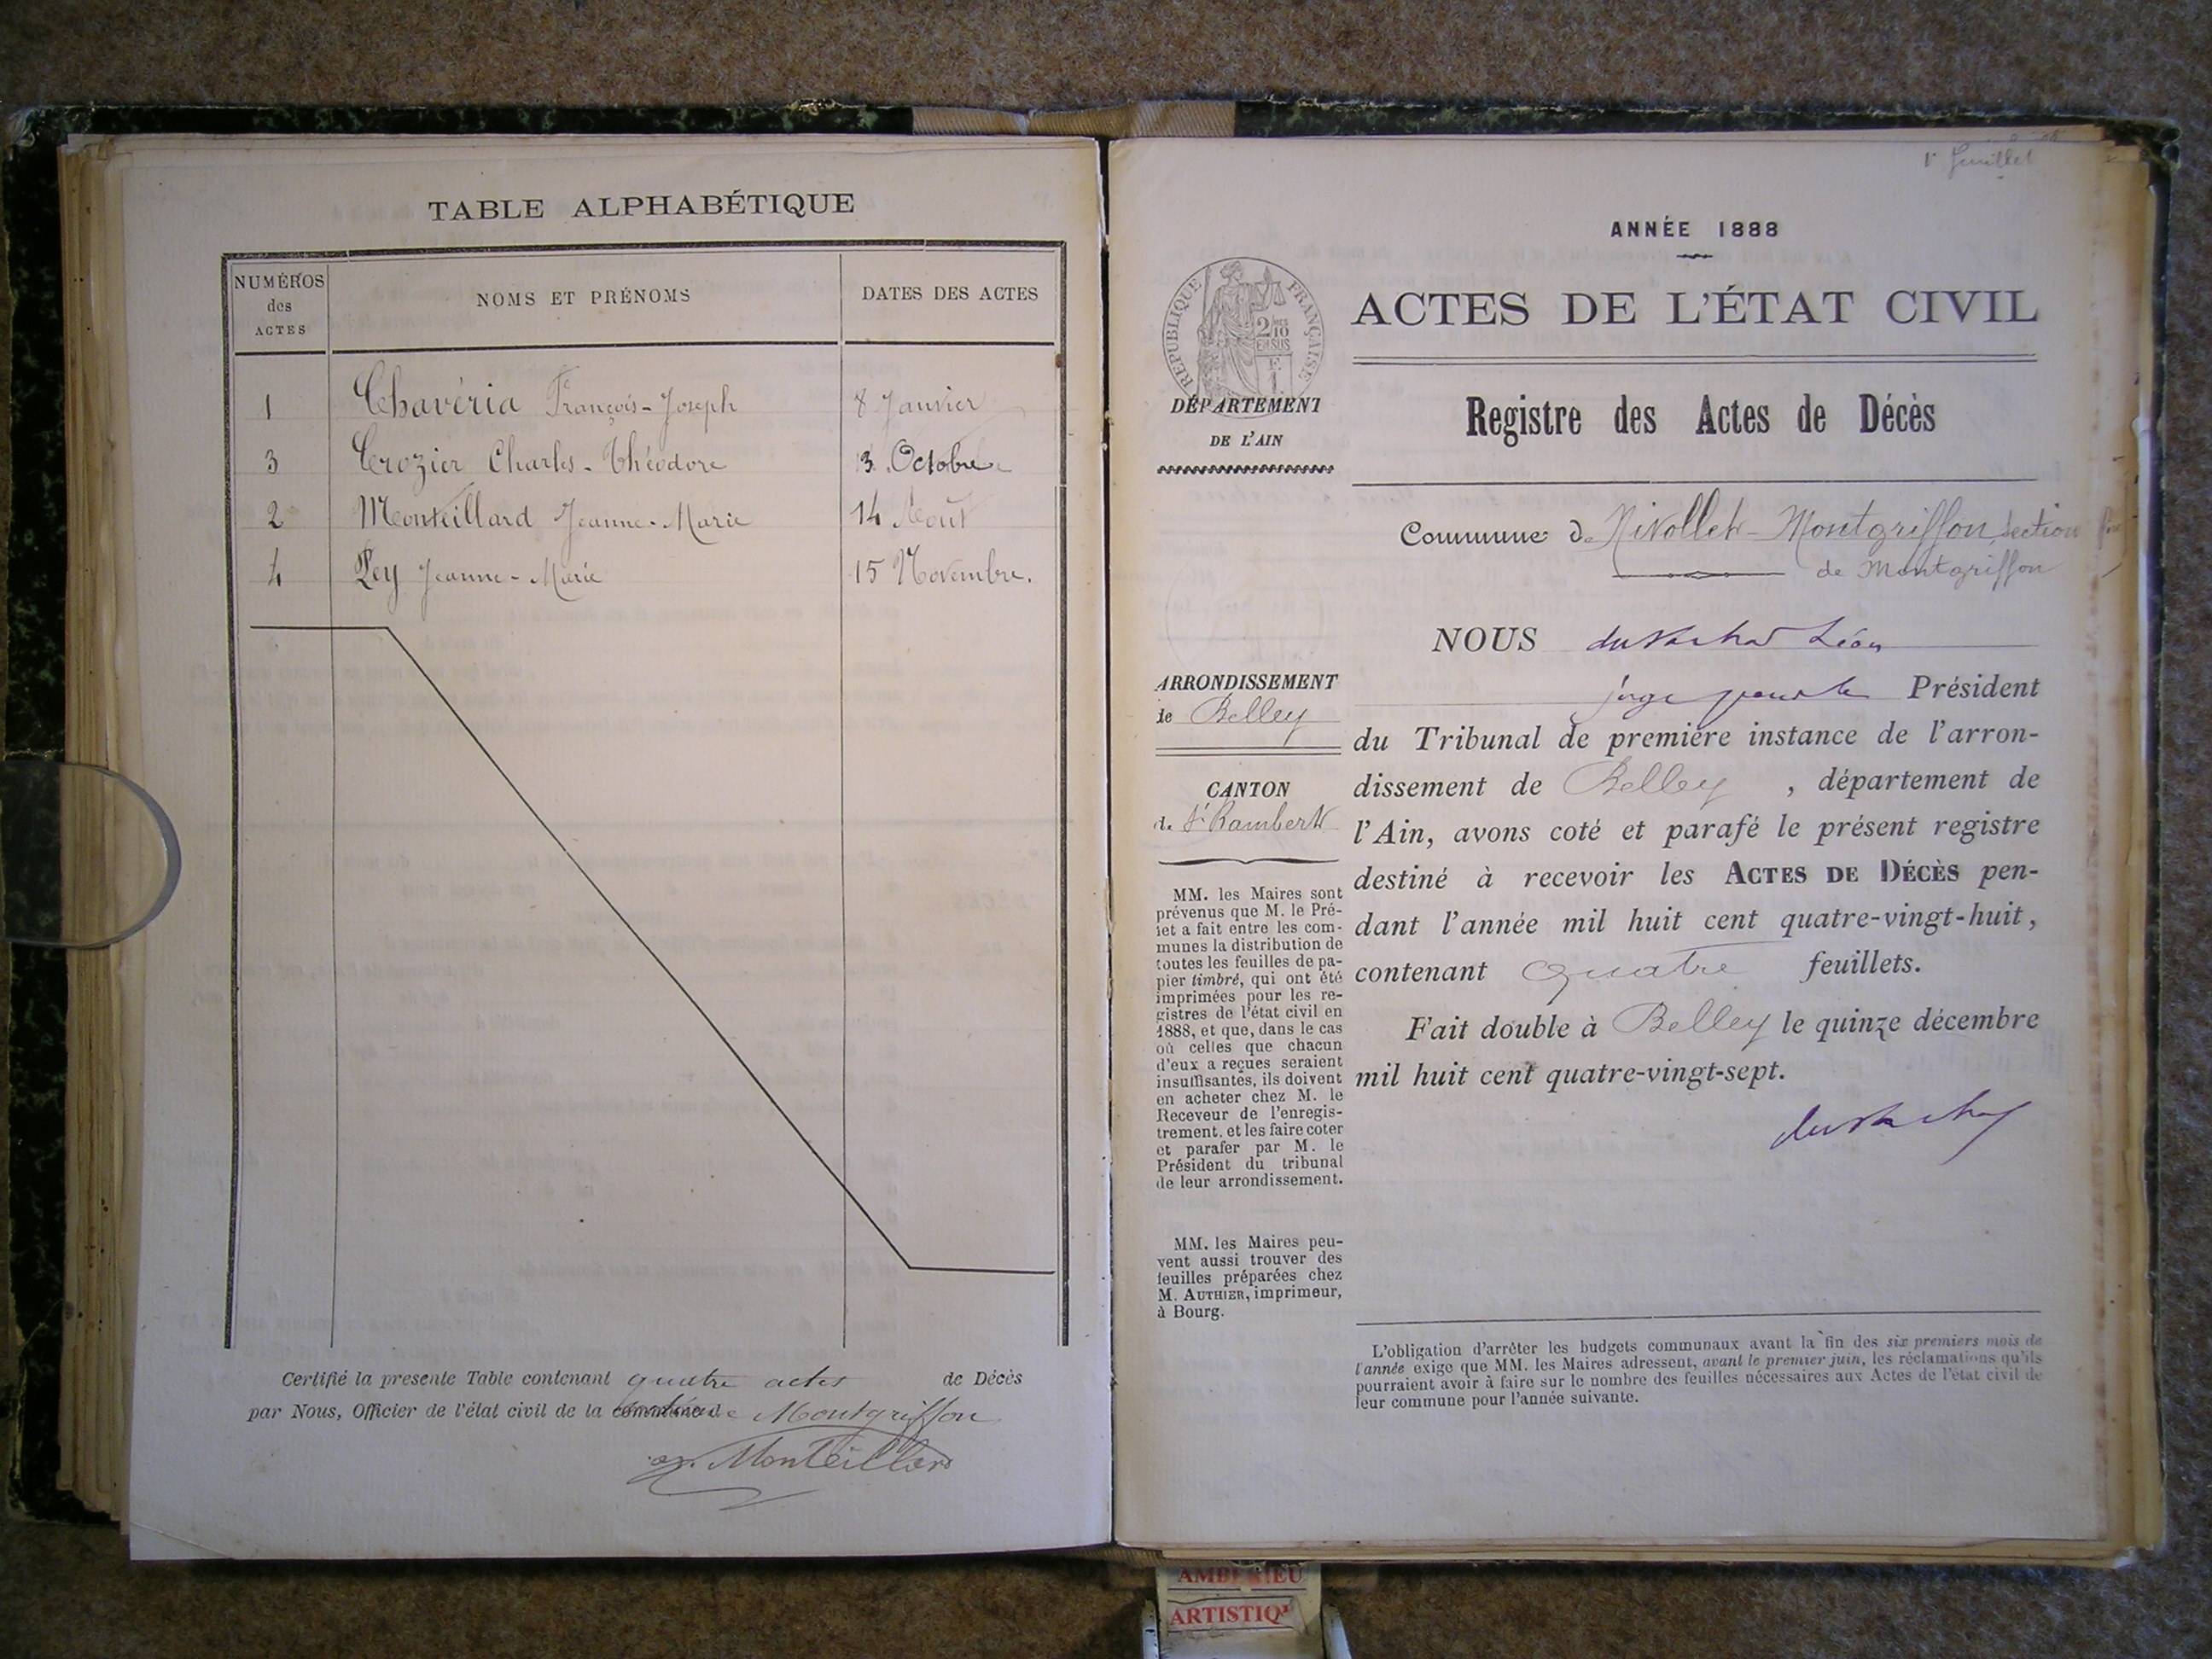 TABLE ALPHABÉTIQUE
NUMÉROS
des
ACTES
NOMS ET PRÉNOMS
DATES DES ACTES
1 Chavéria François-Joseph 8 Janvier
3 Crozier Charles-Théodore 13 Octobre
2 Monteillard Jeanne-Marie 14 Août
4 Pey Jeanne-Marie 15 Novembre.
Certifié la présente Table contenant quatre actes de Décès
par Nous, Officier de l'état civil de la commune de Montgriffon
Monteillard
1er feuillet
ANNÉE 1888
ACTES DE L'ÉTAT CIVIL
RÉPUBLIQUE FRANÇAISE
2/10
EN SUS
DÉPARTEMENT
DE L'AIN
Registre des Actes de Décès
Commune de Nivollet-Montgriffon section
de Montgriffon
NOUS Léon
juge pour le Président
ARRONDISSEMENT
de Belley
CANTON
de St Rambert
du Tribunal de première instance de l'arron-
dissement de Belley, département de
l'Ain, avons coté et parafé le présent registre
destiné à recevoir les ACTES DE DÉCÈS pen-
dant l'année mil huit cent quatre-vingt-huit,
contenant quatre feuillets.
Fait double à Belley le quinze décembre
mil huit cent quatre-vingt-sept.
MM. les Maires sont
prévenus que M. le Pré-
fet a fait entre les com-
munes la distribution de
toutes les feuilles de pa-
pier timbré, qui ont été
imprimées pour les re-
gistres de l'état civil en
1888, et que, dans le cas
où celles que chacun
d'eux a reçues seraient
insuffisantes, ils doivent
en acheter chez M. le
Receveur de l'enregis-
trement, et les faire coter
et parafer par M. le
Président du tribunal
de leur arrondissement.
MM. les Maires peu-
vent aussi trouver des
feuilles préparées chez
M. AUTHIER, imprimeur,
à Bourg.
L'obligation d'arrêter les budgets communaux avant la fin des six premiers mois de
l'année exige que MM. les Maires adressent, avant le premier juin, les réclamations qu'ils
pourraient avoir à faire sur le nombre des feuilles nécessaires aux Actes de l'état civil de
leur commune pour l'année suivante.
ARTISTIQ